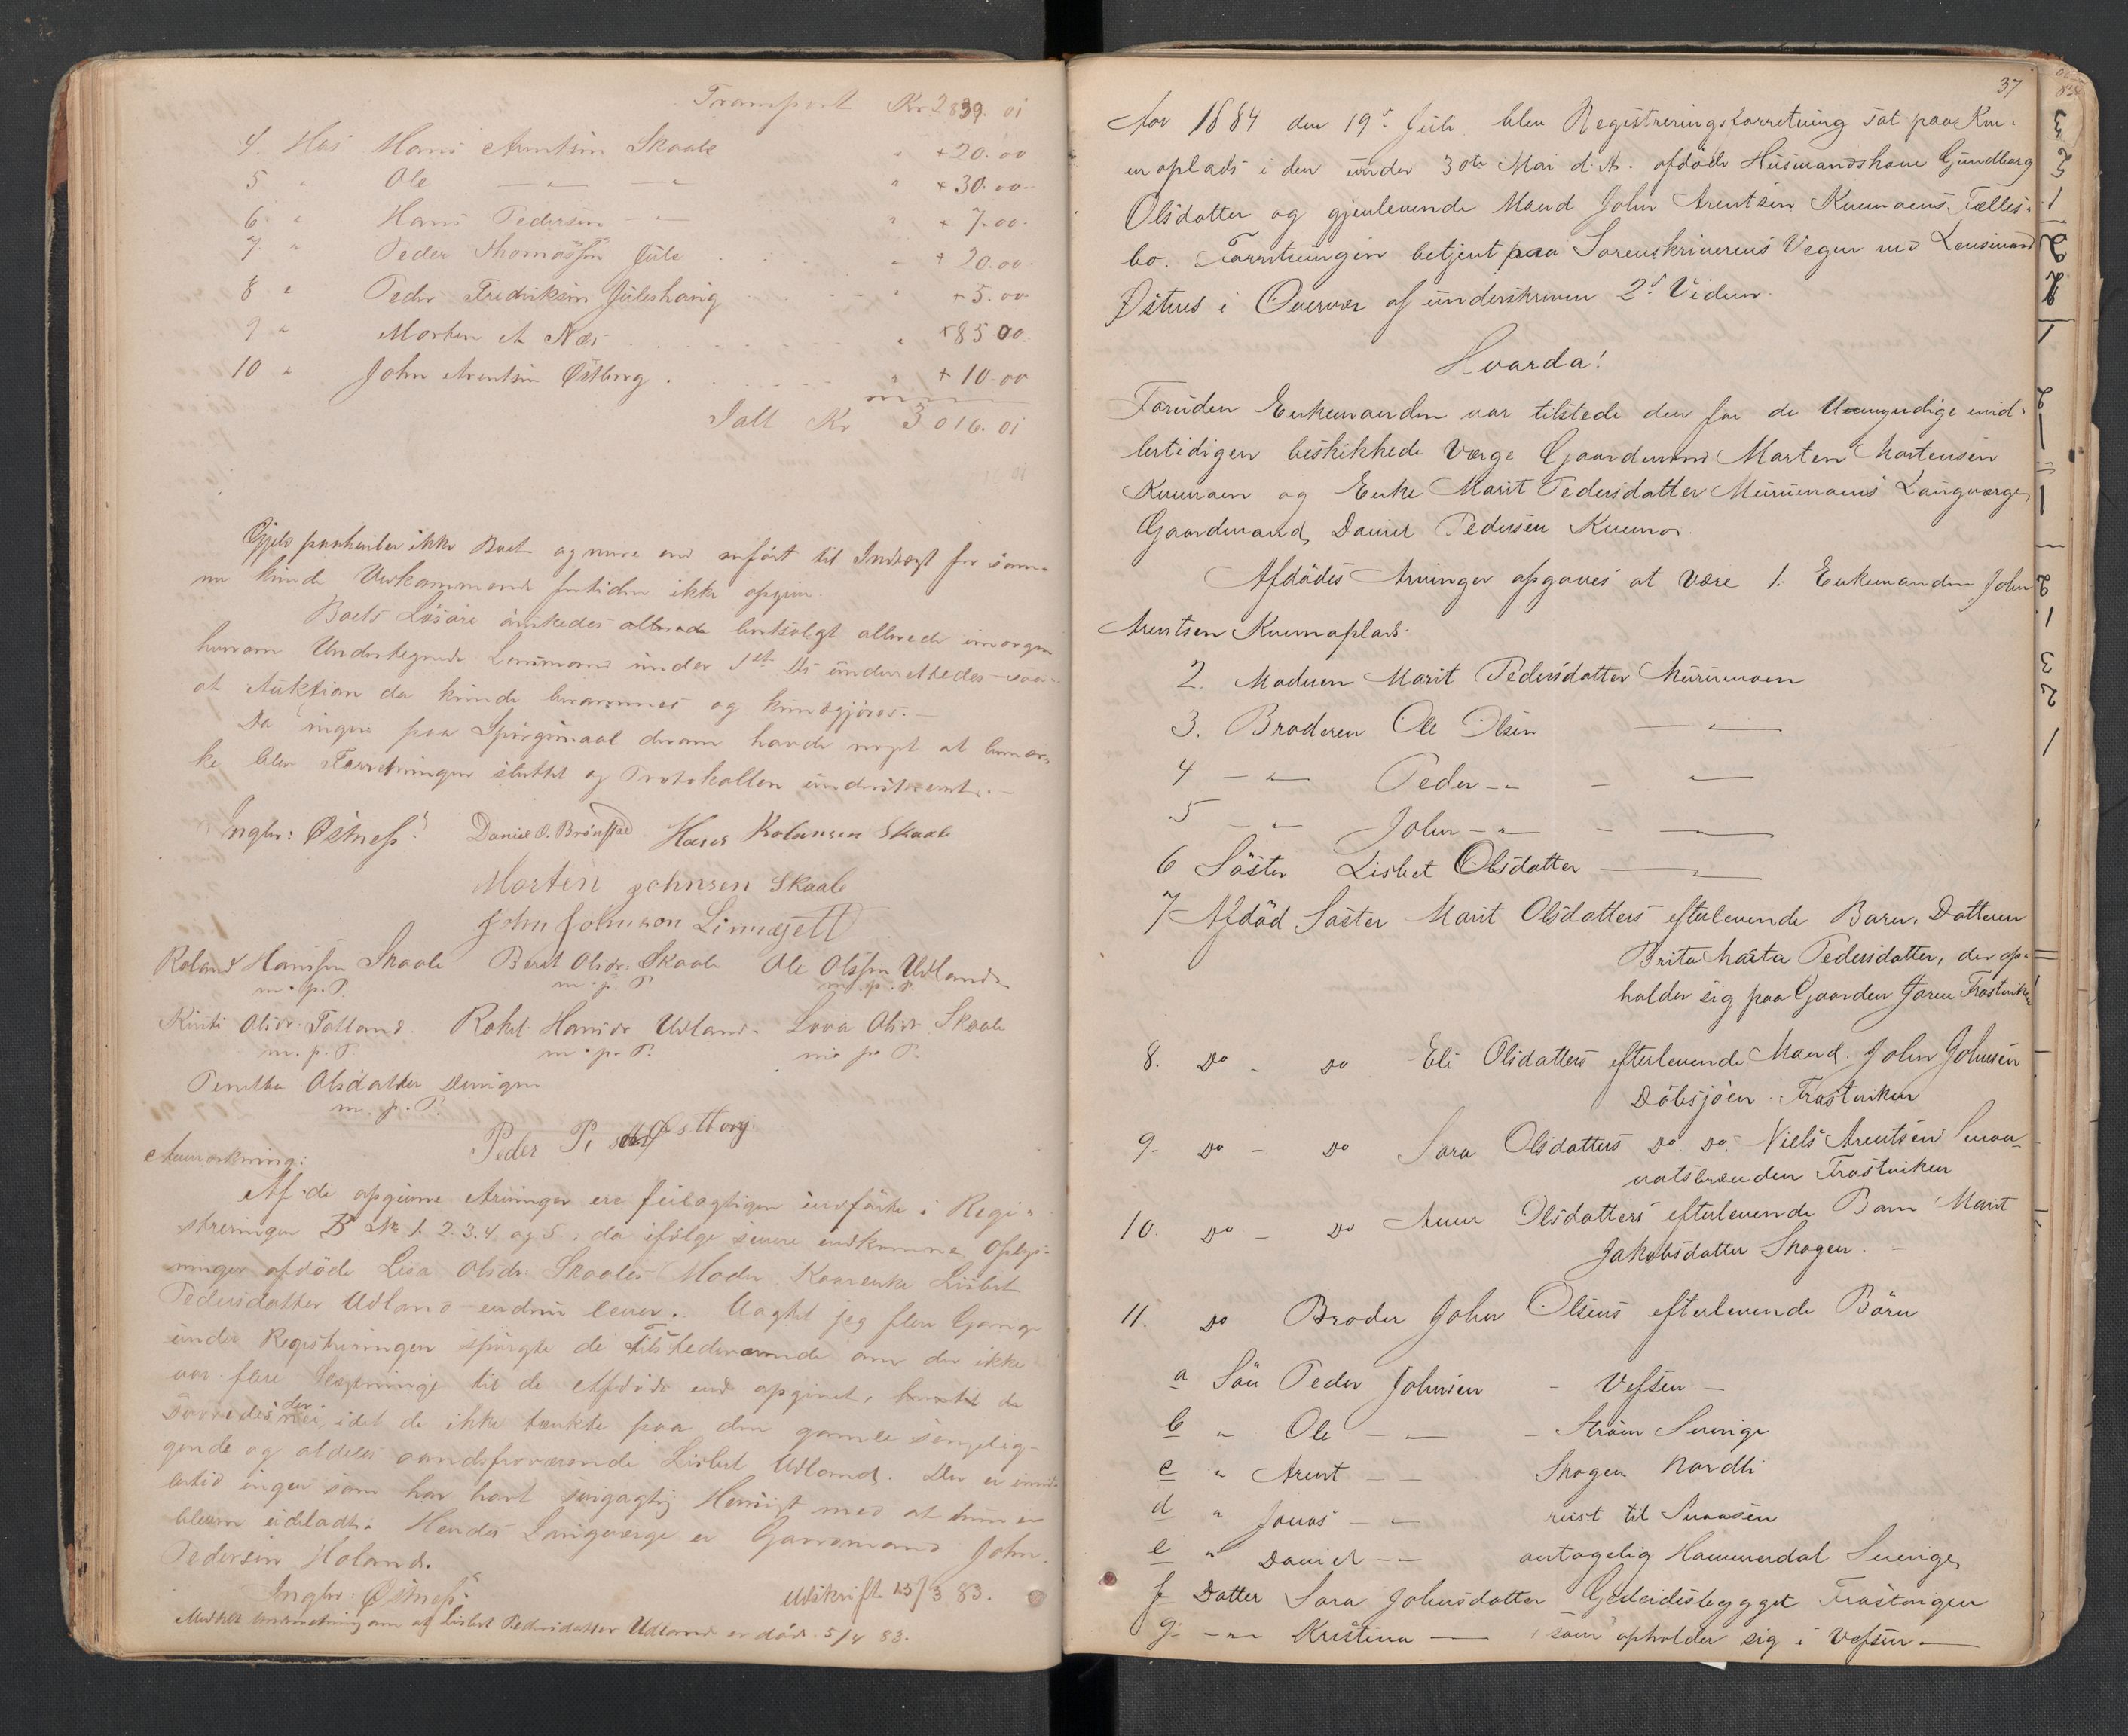 Transport Kr 2839.01
4. Hos Hans Arentsen Skaale " + 20.00
5 " Ole — " — — " — " + 30.00
6 " Hans Pedersen — " — " + 7.00
7 " Peder Thomassen Jule " + 20.00
8 " Peder Fredriksen Juleshaug " + 5.00
9 " Morten A Næs " + 85 00
10 " John Arentsen Østborg . " + 10.00
Ialt Kr 3 016.01
Gjeld paahviler ikke Boet og mere end anført til Indtægt for sam-
me kunde Vedkommende fortiden ikke opgive.
Boets Løsøre ønskedes allerede bortsolgt allerede imorgen
hvorom Undertegnede Lensmand under 1ste Ds underrettedes saa
at Auktion da kunde berammes og kundgjøres.—
Da ingen paa Spørgsmaal derom havde noget at bemær-
ke blev Forretningen sluttet og Protokollen underskrevet.—
Ingbr: Østnes. Daniel O. Brønstad Hans Rolansen Skaale
Morten Johnsen Skaale
John Johnson Limesjett
Roland Hansen Skaale Berit Olsdr. Skaale Ole Olsen Udland
m. p. P. m. p. P. m. p. P.
Kirsti Olsdr. Totland. Rakel Hansdr Udland. Lova Olsdr. Skaale
m. p. P. m. p. P. m. p. P.
Olsdatter Devigen
m. p. P.
Peder P. Østborg
Anmærkning:
Af de opgivne Arvinger ere feilagtigen indførte i Regi-
streringen B No 1. 2. 3. 4. og 5., da ifølge senere indkomne Oplys-
ninger afdøde Lisa Olsdr. Skaales Moder Kaarenke Lisbet
Pedersdatter Udland endnu lever. Uagtet jeg flere Gange
under Registreringen spurgte de Tilstedeværende om der ikke
var flere Slægtninge til de Afdøde end opgivet, da
svaredes der nei, idet de ikke tænkte paa den gamle sengelig-
gende og aldeles aandsfraværende Lisbet Udland. Der er imid-
lertid ingen som har havt svigagtig Hensigt med at hun er
bleven udeladt. Hendes Laugværge er Gaardmand John
Pedersen Holand.
Ingbr: Østnes. Udskrift 15/3 83.
Meddelt Underretning om at Lisbet Pedersdatter Udland er død. 5/4 83.
37
Aar 1884 den 19de Juli blev Registreringsforretning sat paa Kve-
enoplads i den under 30te Mai d. A. afdøde Husmandskone Gundborg
Olsdatter og gjenlevende Mand John Arentsen Kvemoens Fælles-
bo. Forretningen betjent paa Sorenskriverens Vegne ved Lensmand
Østnes i Overvær af underskrevne 2de Vidner.
Hvorda!
Foruden Enkemanden var tilstede den for de Umyndige mid-
lertidigen beskikkede Værge Gaardmand Morten Mortensen
Kvemoen og Enke Marit Pedersdatter Murumoens Laugværge,
Gaardmand, Daniel Pedersen Kvemo.
Afdødes Arvinger opgaves at være 1. Enkemanden John
Arentsen Kvemoplads.
2. Moderen Marit Pedersdatter Murumoen
3. Broderen Ole Olsen — " —
4 — " — Peder — " — — " —
5 — " — John — " — — " —
6 Søster Lisbet Olsdatter — " —
7 Afdød Søster Marit Olsdatters efterlevende Barn. Datteren
Brita Marta Pedersdatter, der op-
holder sig paa Gaarden Jorm Frostviken
8. Do - Do Eli Olsdatters efterlevende Mand. John Johnsen
Dølisjøen Frostviken
9 - Do - Do Sara Olsdatters Do. Do. Niels Arentsen
Frostviken
10. Do - Do Anne Olsdatters efterlevende Barn Marit
Jakobsdatter Skogen. —
11. Do Broder John Olsens efterlevende Børn
a Søn Peder Johnsen - Vefsen —
b " Ole — — - Strøm Sverige
c " Arent — — Skogen Nordli
d " Jonas — — reist til Snaasen
e " Daniel — — antagelig Hammerdal Sverige
f Datter Sara Johnsdatter Frostvigen
g - " - Kristina — som opholder sig i Vefsen —